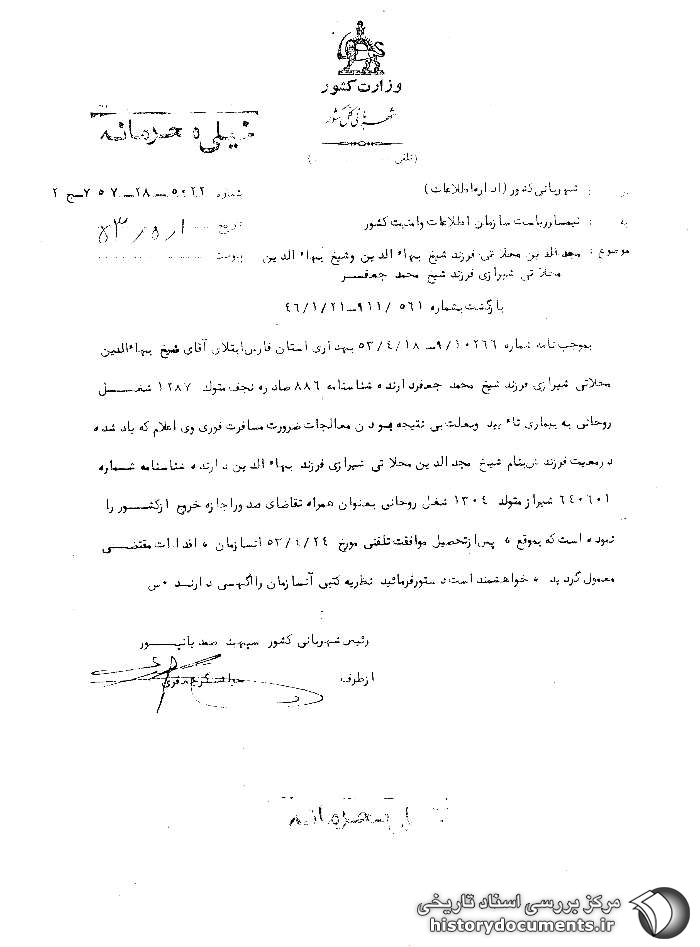 وزارت کشور
شهربانی کل کشور
خیلی محرمانه
(تلفنی ............)
شهربانی کشور (اداره اطلاعات)
شماره ۵۰۲۲ــ۲۸ــ۷۵۷ــج ۲
به : تیمسار ریاست سازمان اطلاعات و امنیت کشور
تاریخ ۱/ ۵/ ۵۳
موضوع : مجدالدین محلاتی فرزند شیخ بهاءالدین وشیخ بهاءالدین
پیوست ............
محلاتی شیرازی فرزند شیخ محمد جعفر
بازگشت بشماره ۵۶۱ /۹۱۱ــ۴۶/۱/۲۱
بموجب نامه شماره ۹/۱۰۲۶۶ــ۵۳/۴/۱۸ بهداری استان فارس ابتلای آقای شیخ بهاءالدین
محلاتی شیرازی فرزند شیخ محمد جعفر دارنده شناسنامه ۸۸۶ صادره نجف متولد ۱۲۸۷ شغل
روحانی به بیماری تائید وبعلت بی نتیجه بودن معالجات ضرورت مسافرت فوری وی اعلام که یاد شده
درمعیت فرزندش بنام شیخ مجدالدین محلاتی شیرازی فرزند بهاءالدین دارنده شناسنامه شماره
۶۴۰۶۰۱ شیراز متولد ۱۳۰۴ شغل روحانی بعنوان همراه تقاضای صدوراجازه خروج ازکشور را
نموده است که بموقع ه پس ازتحصیل موافقت تلفنی مورخ ۵۳/۴/۲۴ آنسازمان ه اقدامات مقتضی
معمول گردید ه خواهشمند است دستورفرمائید نظریه کتبی آنسازمان راآگهی دارند ۰س
رئیس شهربانی کشور سپهبد صمدیانپور
ازطرف
محرمانه
مرکز بررسی اسناد تاریخی
historydocuments.ir